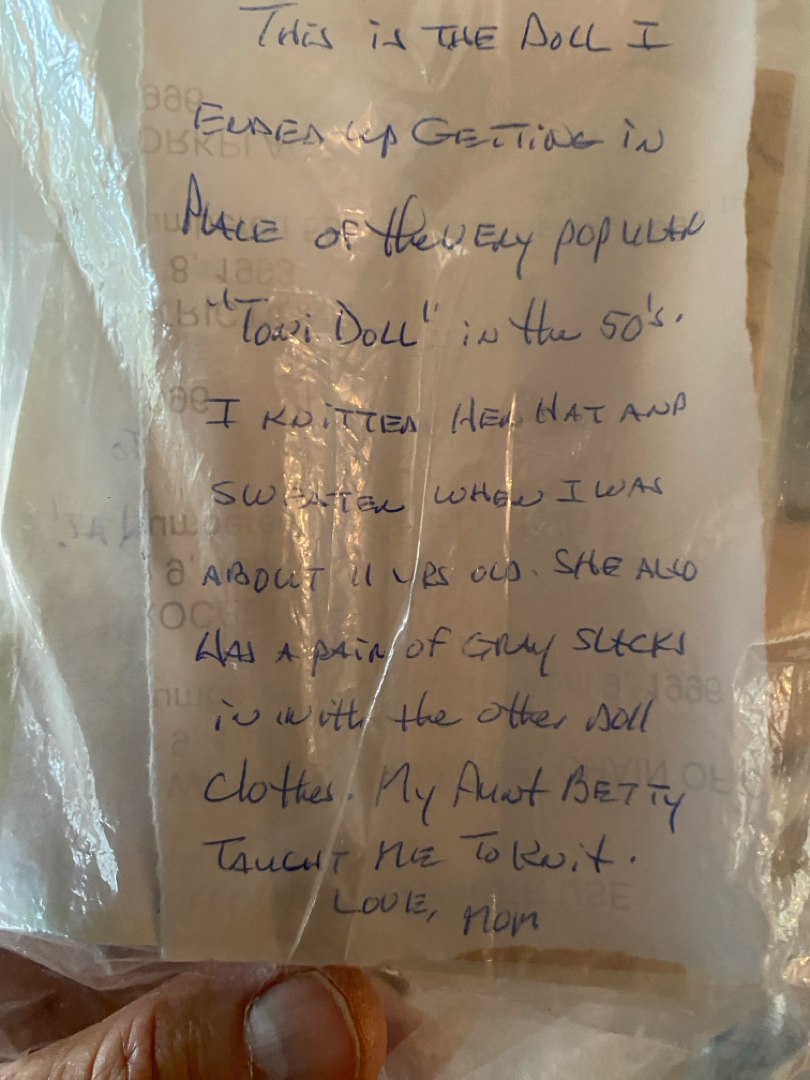 This is THE DOLL I
ENDED UP GETTING IN
PLACE OF the VERY POPULAR
"Toni DOLL" in the 50's.
I KNITTED HER HAT AND
SWEATER WHEN I WAS
ABOUT 11 YRS OLD. SHE ALSO
HAS A PAIR OF GRAY SLACKS
in with the other DOLL
Clothes. My Aunt BETTY
TAUGHT ME To Knit.
LOVE, MOM